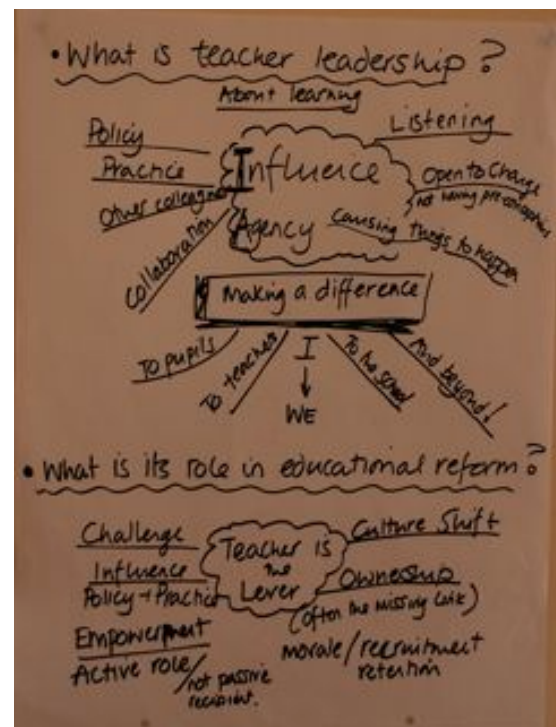 • What is teacher leadership?
About learning
Policy
Practice
Other colleagues
Collaboration
Influence
Agency
Listening
Open to Change
not having preconceptions
Causing things to happen
Making a difference
To pupils
To teachers
I
WE
To the school
And beyond!
• What is its role in educational reform?
Challenge
Influence
Policy + Practice
Empowerment
Active role
/not passive
recipient.
Teacher is
the
Lever
Culture Shift
Ownership
(often the missing link)
morale/recruitment
retention